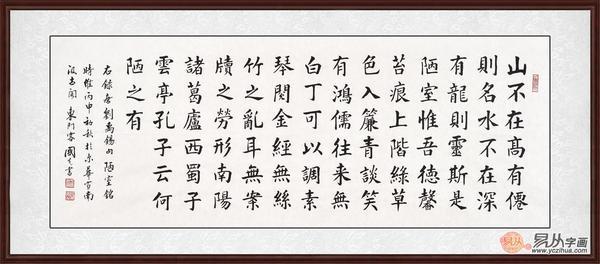 山不在高有僊
則名水不在深
有龍則靈斯是
陋室惟吾德馨
苔痕上階綠草
色入簾青談笑
有鴻儒往來無
白丁可以調素
琴閱金經無絲
竹之亂耳無案
牘之勞形南陽
諸葛廬西蜀子
雲亭孔子云何
陋之有
右錄唐劉禹錫陋室銘
時維丙申初秋於京華
書
易从字画
www.yczihua.com